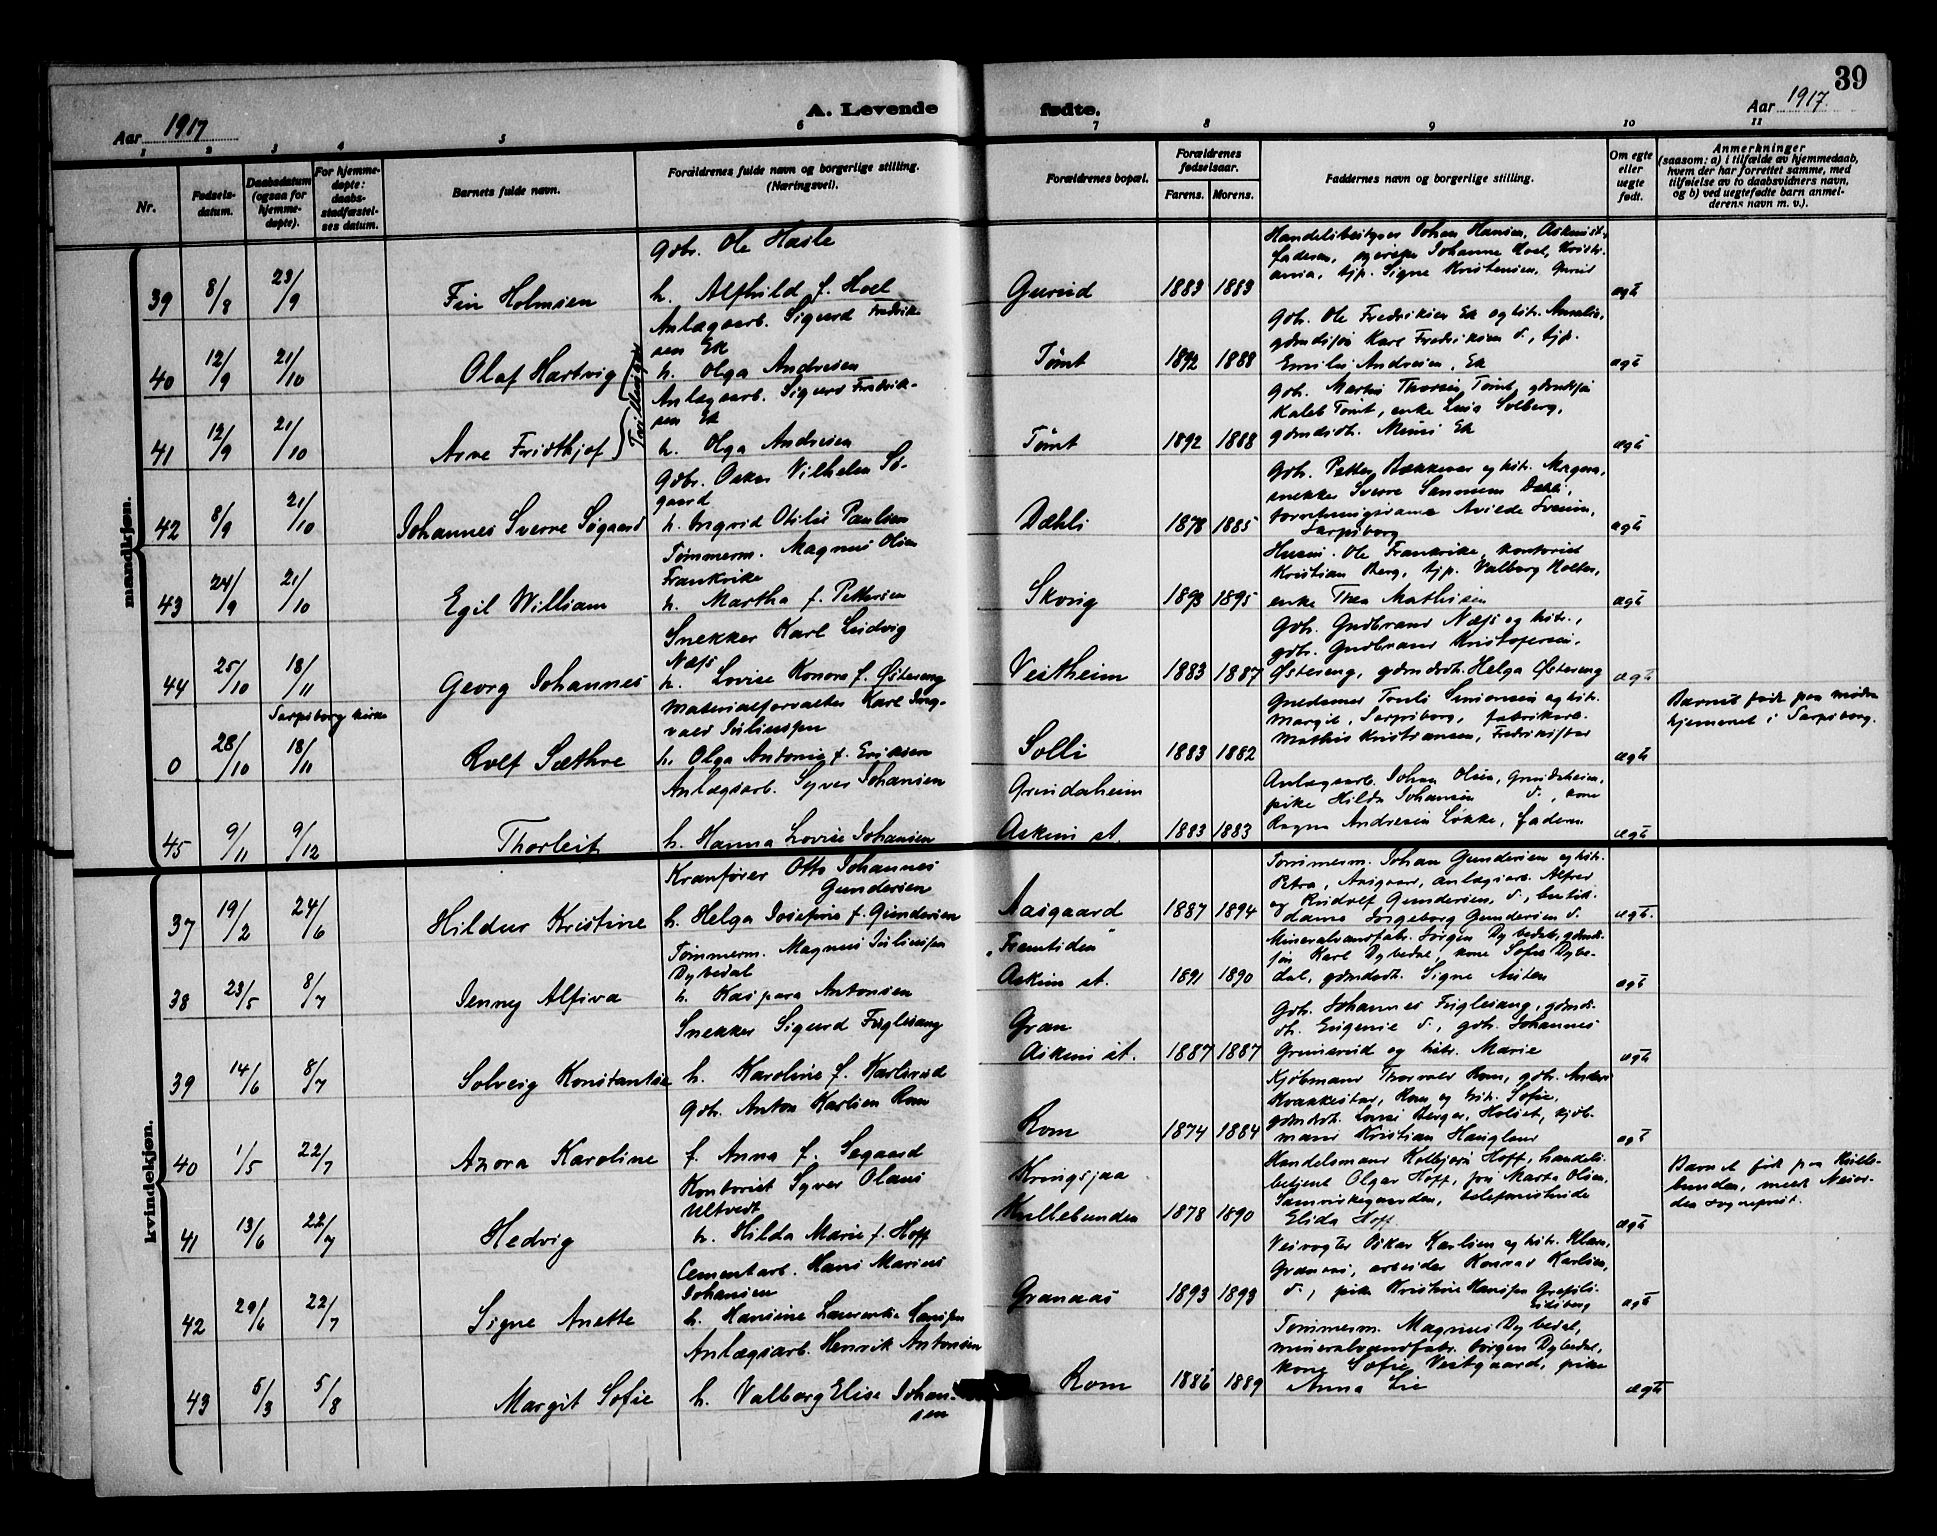 39
Aar 1917
A. Levende
fødte.
Aar 1917.
1 2 3 4 5 6 7 8 9 10 11
Nr.
Fødsels-
datum.
Daabsdatum
(ogsaa for
hjemme-
døpte).
For hjemme-
døpte:
daabs-
stadfæstel-
ses datum.
Barnets fulde navn.
Forældrenes fulde navn og borgerlige stilling.
(Næringsvei).
Forældrenes bopæl.
Forældrenes
fødselsaar.
Farens. Morens.
Faddernes navn og borgerlige stilling.
Om egte
eller
uegte
født.
Anmerkninger
(saasom: a) i tilfælde av hjemmedaab,
hvem der har forrettet samme, med
tilføielse av to daabsvidners navn,
og b) ved uegtefødte barn anmel-
derens navn m. v.).
mandkjøn.
39 8/8 23/9 Fin Holmsen
Gdbr. Ole Hasle
h. Alfhild f. Hoel
Gurud 1883 1883
Handelsbestyrer Johan Hansen, Askimst.
faderen, Johanne Hoel, Kristi-
ania, tjp. Signe Kristensen, Gurud
egt
40 12/9 21/10 Olaf Hartvig
Tvillinger
Anlægsarb. Sigurd Fredrik-
sen Ek
h. Olga Andresen
Tømt 1892 1888
Gdb. Ole Fredriksen Ek og hstr. Amalie,
gdmdsøn Karl Fredriksen s., tjp.
Emilie Andresen, Ek
egt
41 12/9 21/10 Arne Fridthjof
Anlægsarb. Sigurd Fredrik-
sen Ek
h. Olga Andresen
Tømt 1892 1888
Gdb. Martin Thoresen Tømt, gdmdsøn
Kaleb Tømt, enke Lina Solberg,
gdmdsdt. Minni Ek
egt
42 8/9 21/10 Johannes Sverre Søgaard
Gdbr. Oskar Vilhelm Sø-
gaard
h. Ingrid Otilie Paulsen
Dæhli 1878 1885
Gdb. Petter Bækkevar og hstr. Magna,
snekker Sverre Dæhli,
Sarpsborg
egt
43 24/9 21/10 Egil William
Tømmerm. Magnus Olsen
Frankrike
h. Martha f. Pettersen
Skorig 1893 1895
Husm. Ole Frankrike, kontorist
Kristian Berg, tjp. Valborg Holter,
enke Thea Mathisen
egt
44 25/10 18/11 Georg Johannes
Snekker Karl Ludvig
Næss
h. Lovise Konora f. Østereng
Vestheim 1883 1887
Gdb. Gudbrand Næss og hstr.,
gdb. Gudbrand Kristofersen,
Østereng, gdmdsdt. Helga Østereng
egt
Sarpsborg kirke
0 28/10 18/11 Rolf Sæthre
Materialforvalter Karl Ing-
vald Juliussen
h. Olga Antonie f. Eriksen
Solli 1883 1882
Simonsen og hstr.
Margit, Sarpsborg, fabrikarb.
Mathis Kristiansen, Fredrikstad
egt
Barnet født paa mødre
hjemmet i Sarpsborg.
45 9/11 9/12 Thorleif
Anlægsarb. Syver Johansen
h. Hanna Lovise Johansen
Grindaheim
Askim st. 1883 1883
Anlægsarb. Johan Olsen, Grindaheim,
pike Hilda Johansen s., kone
Ragna Andresen Løkke, faderen
egt
kvindekjøn.
37 19/2 24/6 Hildur Kristine
Kranfører Otto Johannes
Gundersen
h. Helga Josefine f. Gundersen
Aasgaard 1887 1894
Tømmerm. Johan Gundersen og hstr.
Petra, Aasgaard, anlægsarb. Alfred
og Rudolf Gundersen, s., butik-
dame Ingeborg Gundersen s.
egt.
38 23/5 8/7 Jenny Alfiva
Tømmerm. Magnus Juliussen
Dybedal
h. Kaspara Antonsen
"Fremtiden"
Askim st. 1891 1890
Mineralvandfabr. Jørgen Dybedal, gdmds-
søn Karl Dybedal, kone Sofie Dybe-
dal, gdmdsdt. Signe Auten
egt
39 14/6 8/7 Solveig Konstantse
Snekker Sigurd Fuglesang
h. Karoline f. Karlsrud
Gran
Askim st. 1887 1887
Gdb. Johannes Fuglesang, gdmds-
dt. Eugenie s., gdb. Johannes
Grimsrud og hstr. Marie
egt
40 1/5 22/7 Azora Karoline
Gdb. Anton Karlsen Rom
f. Anna f. Søgaard
Rom 1874 1884
Kjøbmand Thorvald Rom, gdb. Anders
Kvakkestad, Rom og hstr. Sofie,
gdmdsdt. Lovise Berger, Holset, kjøb-
mand Kristian Haugland
egt
41 13/6 22/7 Hedvig
Kontorist Syver Olaus
Ultvedt
h. Hilda Marie f. Hoff
Kringsjaa
Kullebunden 1878 1890
Handelsmand Kolbjørn Hoff, handels-
betjent Olger Hoff, frk Marta Olsen,
Samvirkegaarden, telefonistinde
Elida Hoff
egt
Barnet født paa Kulle-
bunden, meldt Nesod-
den sogneprest.
42 29/6 22/7 Signe Anette
Cementarb. Hans Marius
Johansen
h. Hansine Laurentse Hansen
Granaas 1893 1893
Veivogter Oskar Karlsen og hstr. Klara,
Granaas, arbeider Konrad Karlsen,
s., pike Kristine Hansen
Eidsberg
egt
43 5/3 5/8 Margit Sofie
Anlægsarb. Henrik Antonsen
h. Valborg Elise Johan-
sen
Rom 1886 1889
Tømmerm. Magnus Dybedal,
mineralvandfabr. Jørgen Dybedal,
kone Sofie Vestgaard, pike
Anna Lie
egt